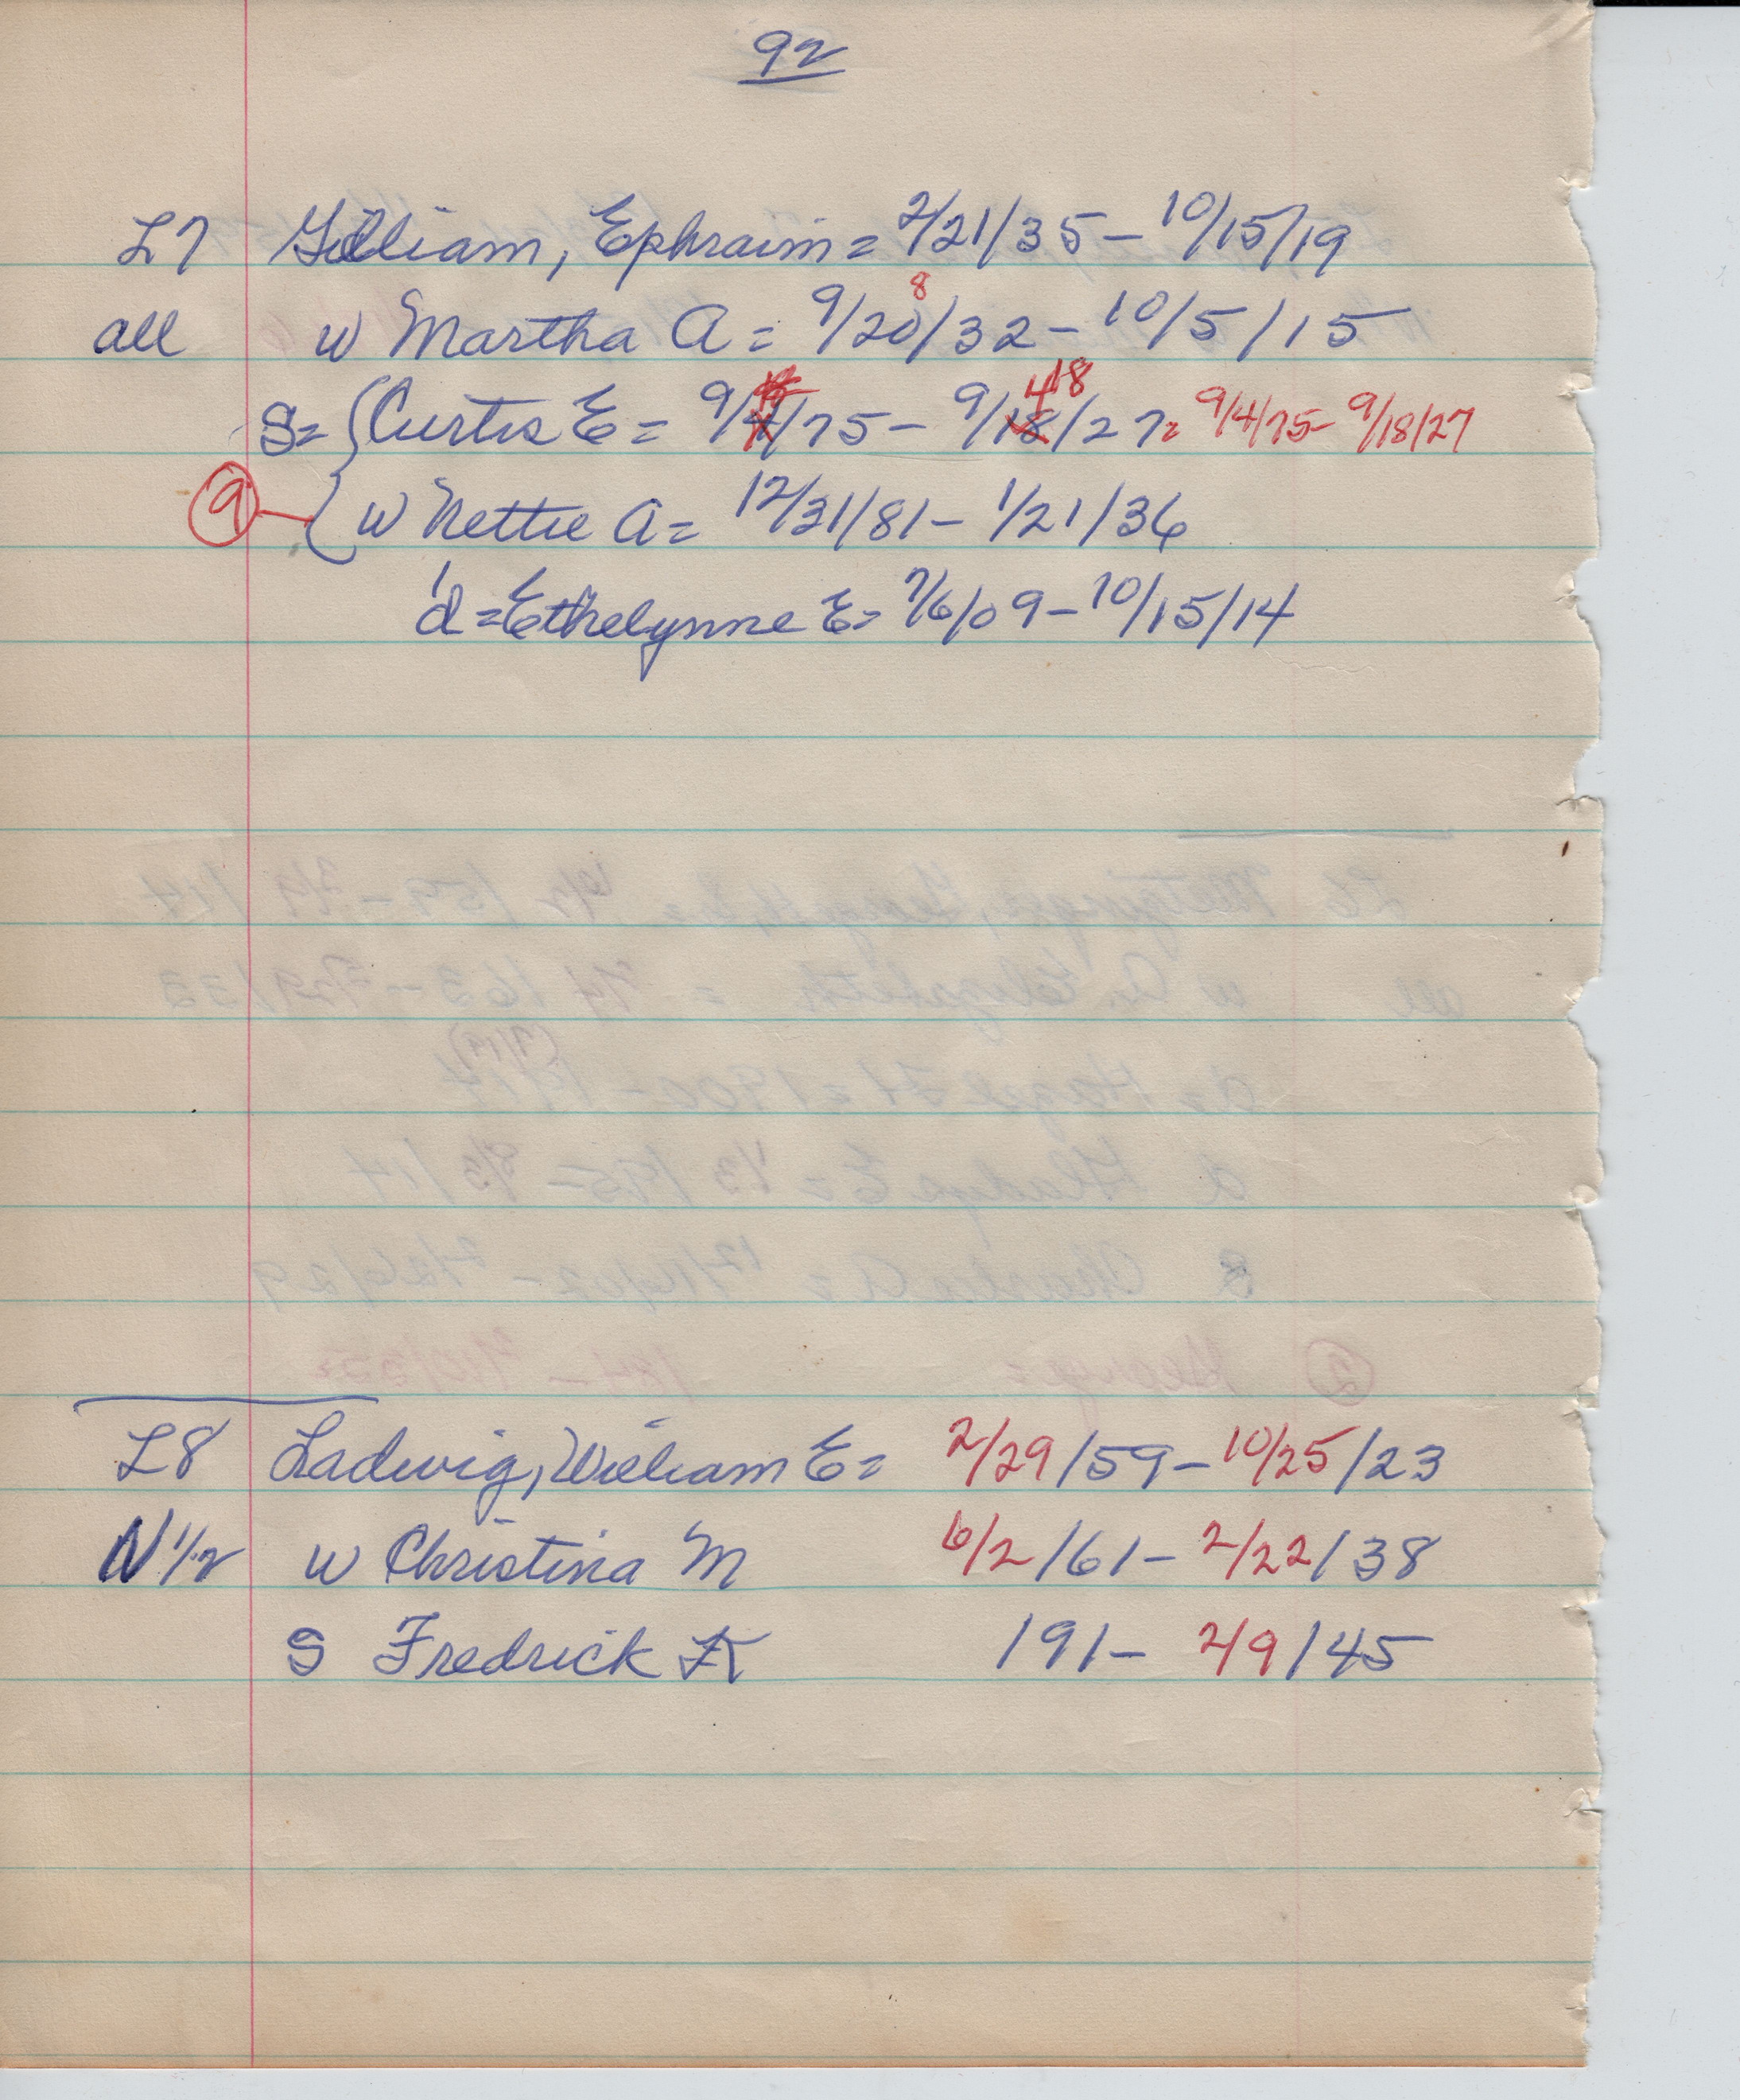 92
L7 Gilliam, Ephraim = 2/21/35 - 10/15/19
8
all w Martha A = 9/20/32 - 10/5/15
4 18
S = { Curtis E = 9/4/75 - 9/18/27 = 9/4/75 - 9/18/27
9 — { w Nettie A = 12/31/81 - 1/21/36
d = Ethelynne E = 7/6/09 - 10/15/14
L8 Ladwig, William E = 2/29/59 - 10/25/23
N 1/2 w Christina M 6/2/61 - 2/22/38
S Fredrick K /91 - 2/9/45